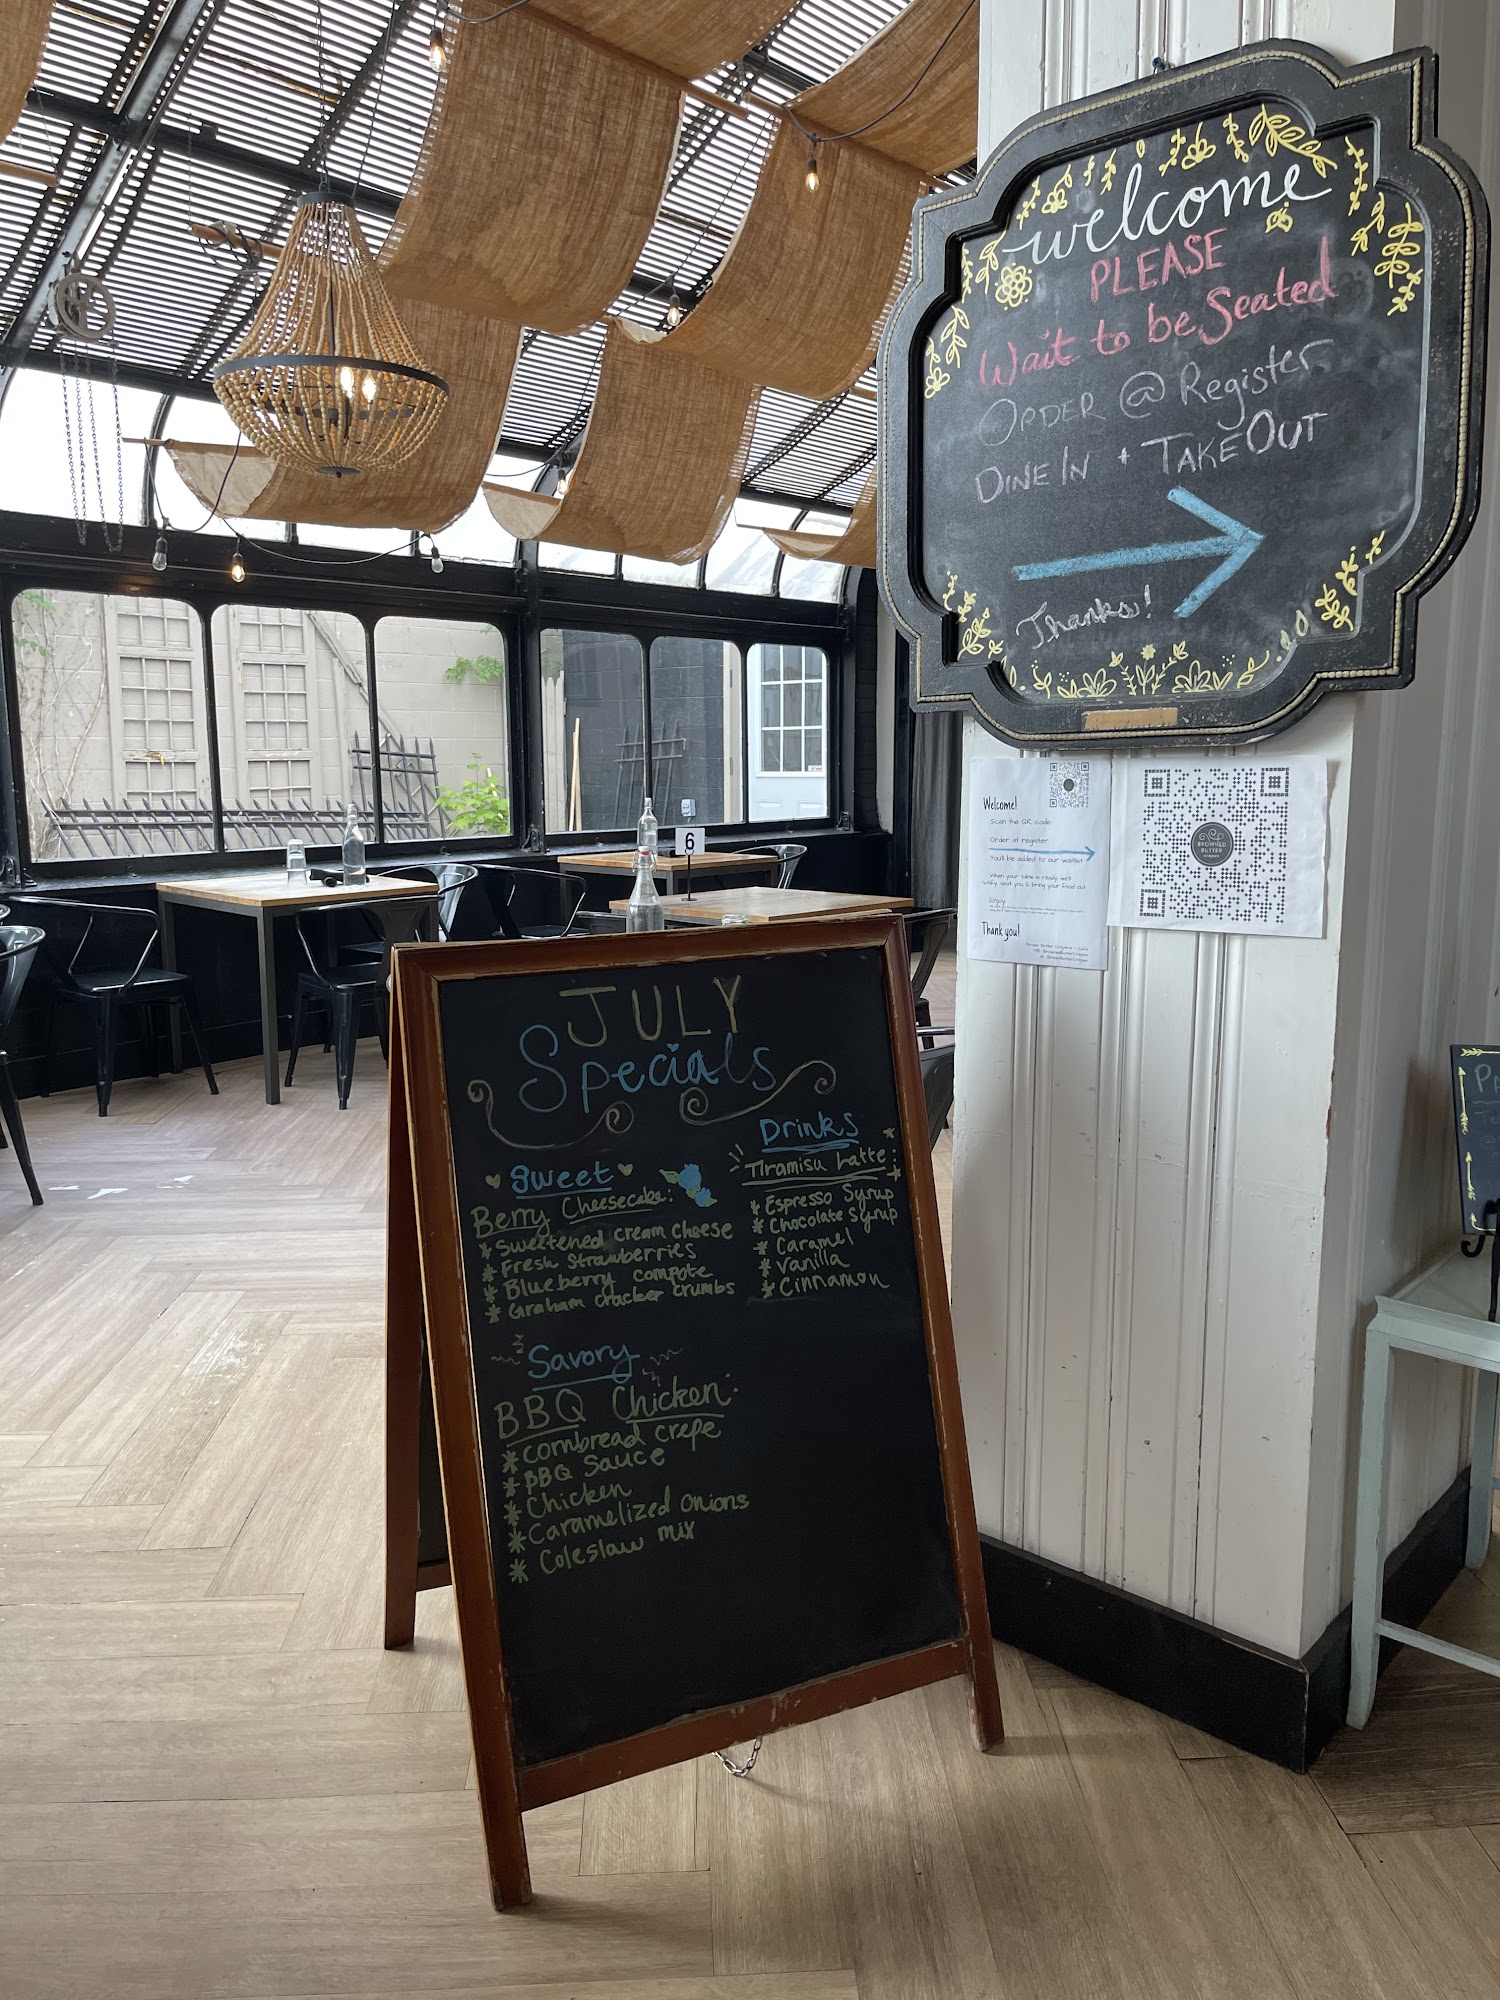 welcome
PLEASE
Wait to be Seated
ORDER @ Register
DINE IN + TAKEOUT
Thanks!
Welcome!
Scan the QR code
Order at register
You'll be added to our waitlist
When your table is ready, we'll
notify, seat you & bring your food out
Enjoy
Thank you!
BROWNED
BUTTER
6
JULY
Specials
Sweet
Berry Cheesecake:
* Sweetened cream cheese
* Fresh Strawberries
* Blueberry compote
* Graham cracker crumbs
Savory
BBQ Chicken:
* cornbread crepe
* BBQ Sauce
* Chicken
* Caramelized onions
* Coleslaw mix
Drinks
Tiramisu Latte:
* Espresso Syrup
* Chocolate Syrup
* Caramel
* Vanilla
* Cinnamon